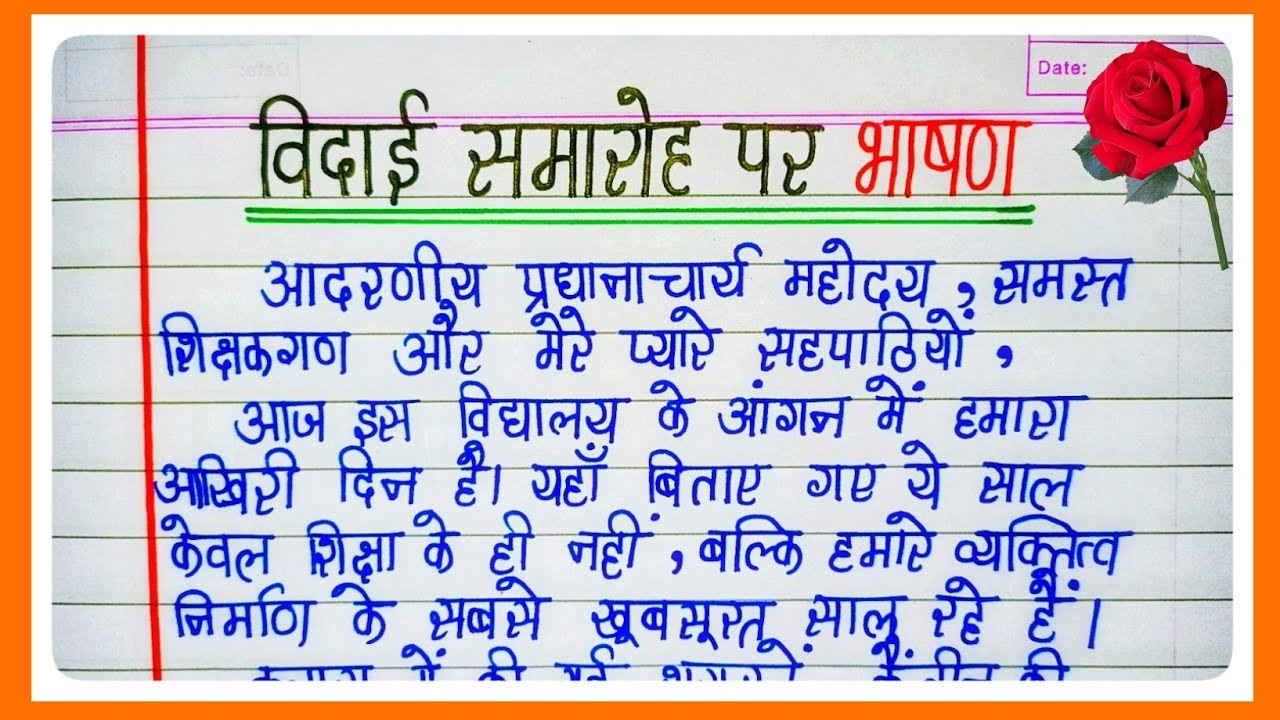 Date:
विदाई समारोह पर भाषण
आदरणीय प्रधानाचार्य महोदय, समस्त
शिक्षकगण और मेरे प्यारे सहपाठियों,
आज इस विद्यालय के आंगन में हमारा
आखिरी दिन है। यहाँ बिताए गए ये साल
केवल शिक्षा के ही नहीं, बल्कि हमारे व्यक्तित्व
निर्माण के सबसे खूबसूरत सालू रहे हैं।